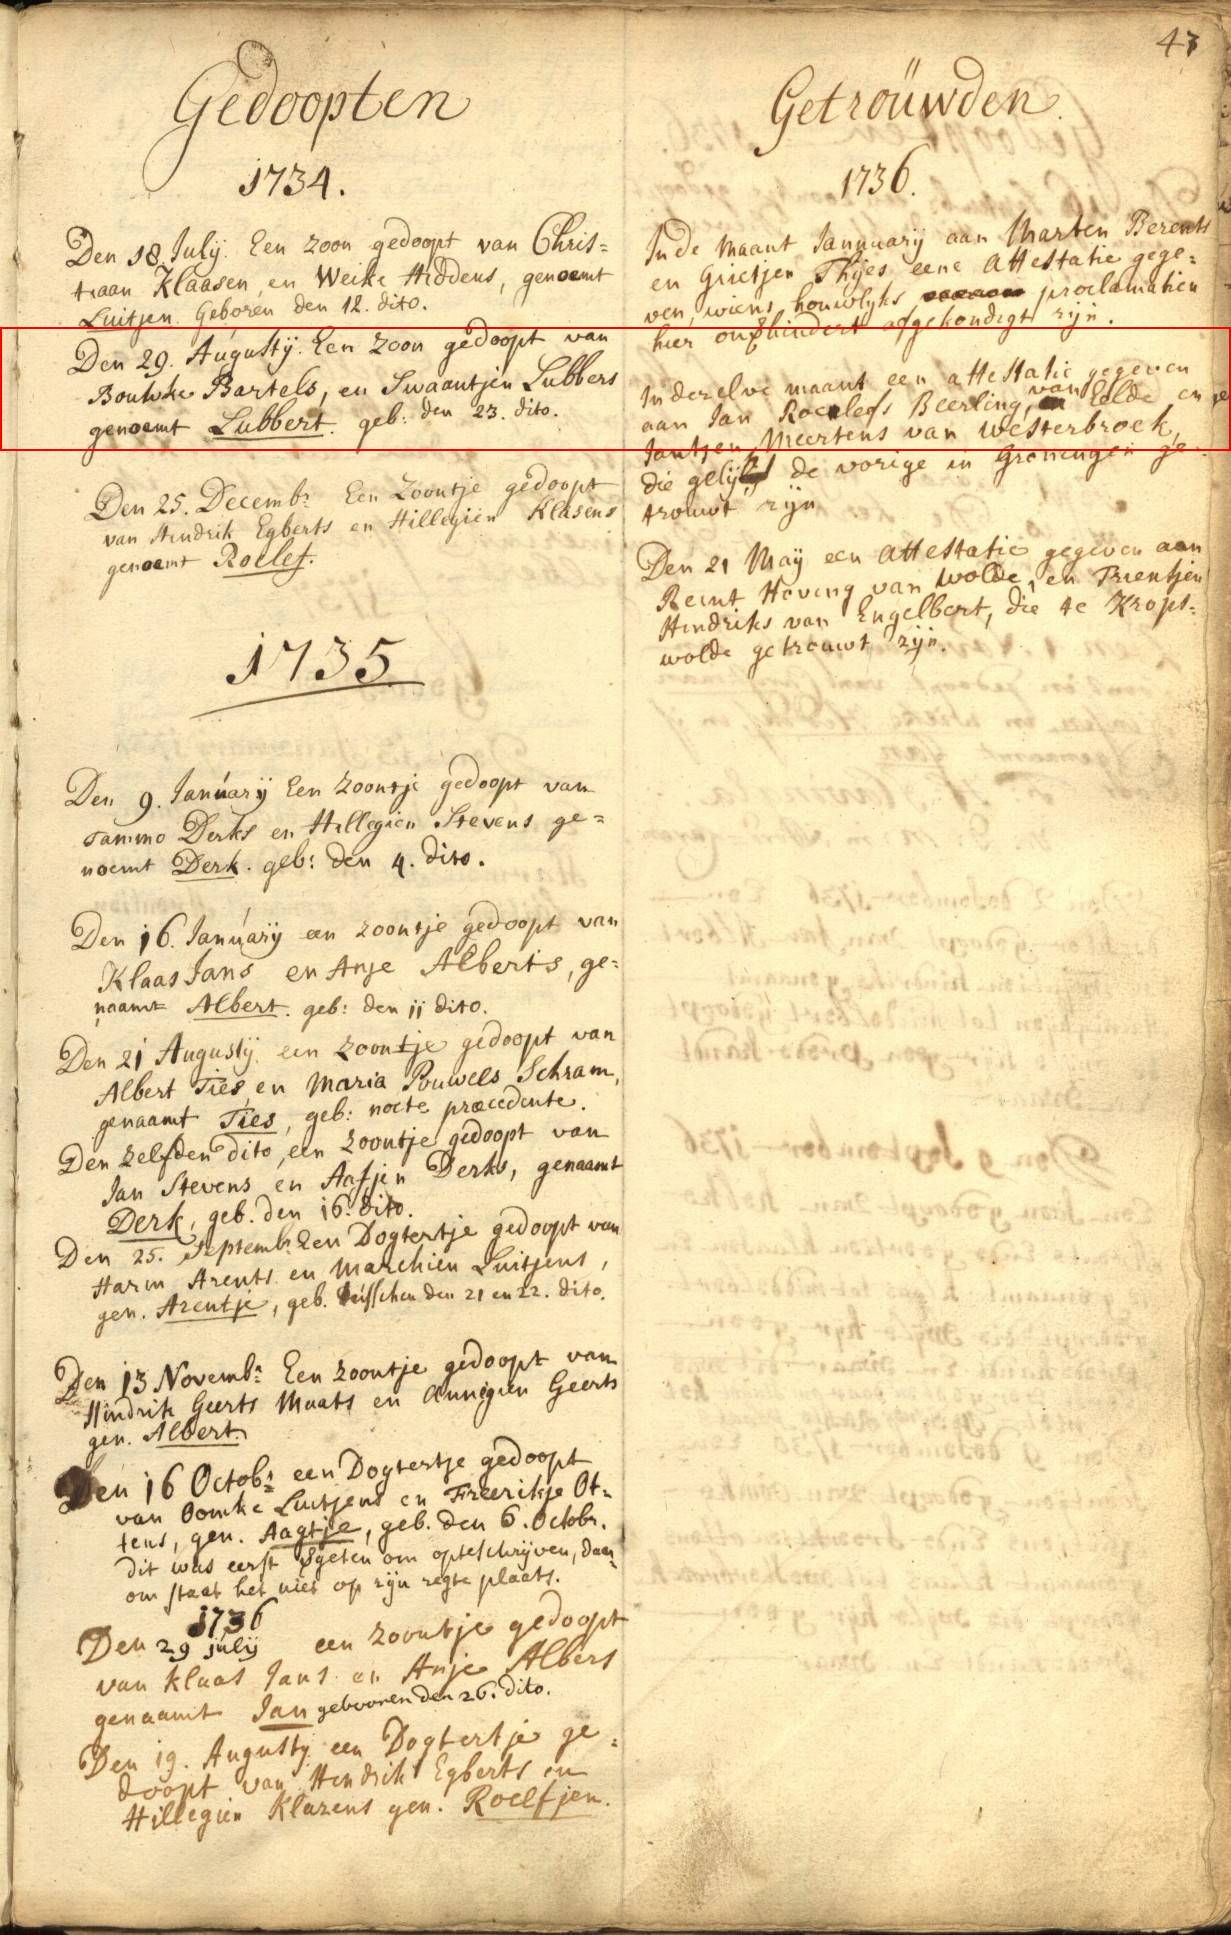 43
Gedoopten
1734.
Den 18 July. Een zoon gedoopt van Chris=
tiaan Klaasen, en Weike Hiddens, genoemt
Luitjen. Geboren den 12. dito.
Den 29. Augusty. Een zoon gedoopt van
Bouwke Bartels, en Swaantjen Lubbers
genoemt Lubbert. geb: den 23. dito.
Den 25. Decemb: Een Zoontje gedoopt
van Hindrik Egberts en Hillegien Klasens
genoemt Roelef.
1735
Den 9. January Een zoontje gedoopt van
Tammo Derks en Hillegien Stevens ge=
noemt Derk. geb: den 4. dito.
Den 16. January een zoontje gedoopt van
Klaas Jans en Anje Alberts, ge=
naamt Albert. geb: den 11 dito.
Den 21 Augusty. een zoontje gedoopt van
Albert Ties en Maria Pouwels Schram,
genaamt Ties, geb: nocte præcedente.
Den zelfden dito, een zoontje gedoopt van
Jan Stevens en Aafjen Derks, genaamt
Derk, geb. den 16. dito.
Den 25. Septemb: Een Dogtertje gedoopt van
Harm Arents en Marchien Luitjens,
gen. Arentje, geb. tusschen den 21 en 22. dito.
Den 13 Novemb: Een zoontje gedoopt van
Hindrik Geerts Maats en Annigien Geerts
gen. Albert.
Den 16 Octob: een Dogtertje gedoopt
van Oomke Luitjens en Freerikje Ot=
tens, gen. Aagtje, geb. den 6. Octobr.
dit was eerst vergeten om opteschrijven, daar=
om staat het niet op zijn regte plaats.
1736
Den 29 july een zoontje gedoopt
van Klaas Jans en Anje Albers
genaamt Jan gebooren den 26. dito.
Den 19. Augusty een Dogtertje ge=
doopt van Hendrik Egberts en
Hillegien Klazens gen. Roelfjen.
Getroüwden.
1736.
In de maant Jannuary aan Marten Berents
en Grietjen Thijes eene attestatie gege=
ven, wiens houwlyks proclamatien
hier onverhindert afgekondigt zijn.
In dezelve maant een attestatie gegeven
aan Jan Roelefs Beerling, van Eelde en
Jantjen Meertens van Westerbroek,
die gelijk de vorige in Groningen ge=
trouwt zijn
Den 21 May een attestatie gegeven aan
Reint Hoving van Wolde, en Trientjen
Hindriks van Engelbert, die te Krops=
wolde getrouwt zijn.